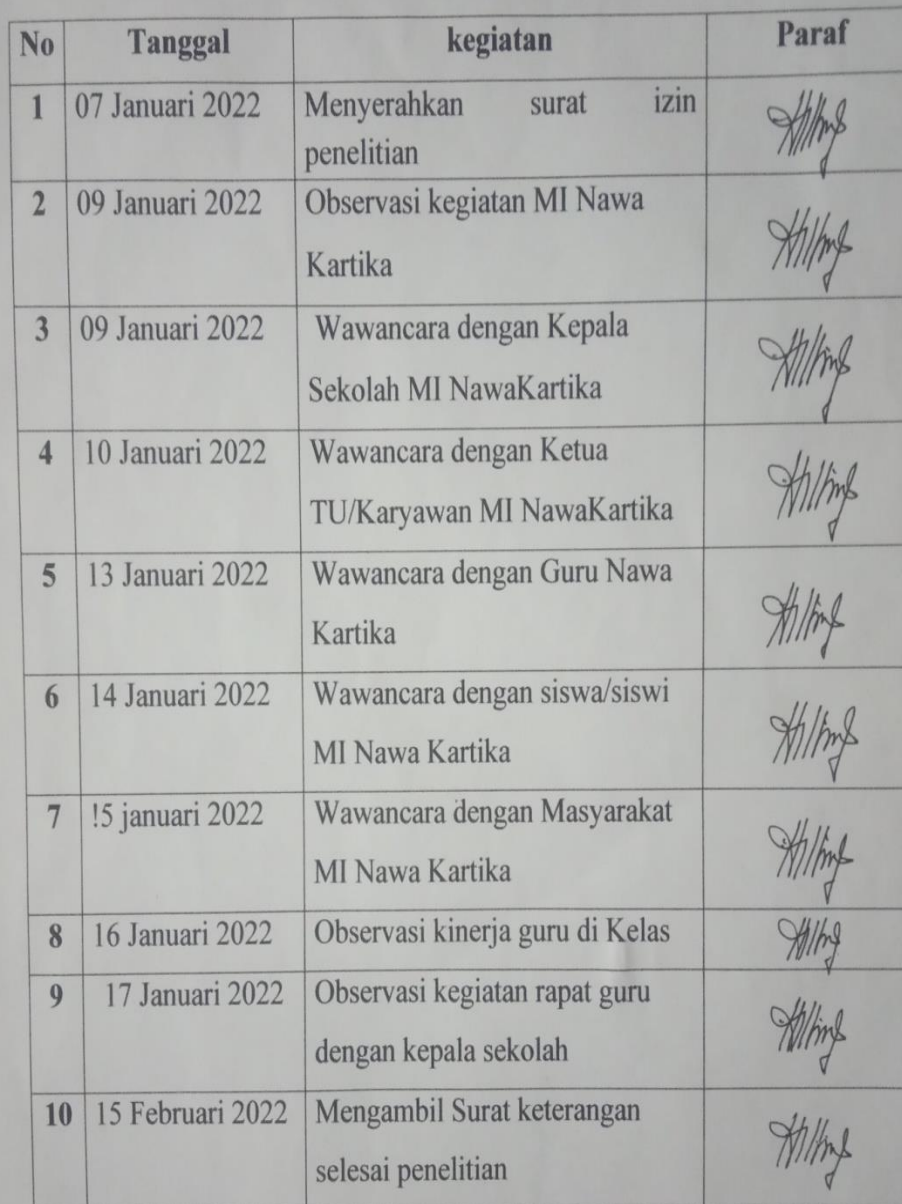 No Tanggal kegiatan Paraf
1 07 Januari 2022 Menyerahkan surat izin
penelitian
2 09 Januari 2022 Observasi kegiatan MI Nawa
Kartika
3 09 Januari 2022 Wawancara dengan Kepala
Sekolah MI NawaKartika
4 10 Januari 2022 Wawancara dengan Ketua
TU/Karyawan MI NawaKartika
5 13 Januari 2022 Wawancara dengan Guru Nawa
Kartika
6 14 Januari 2022 Wawancara dengan siswa/siswi
MI Nawa Kartika
7 !5 januari 2022 Wawancara dengan Masyarakat
MI Nawa Kartika
8 16 Januari 2022 Observasi kinerja guru di Kelas
9 17 Januari 2022 Observasi kegiatan rapat guru
dengan kepala sekolah
10 15 Februari 2022 Mengambil Surat keterangan
selesai penelitian